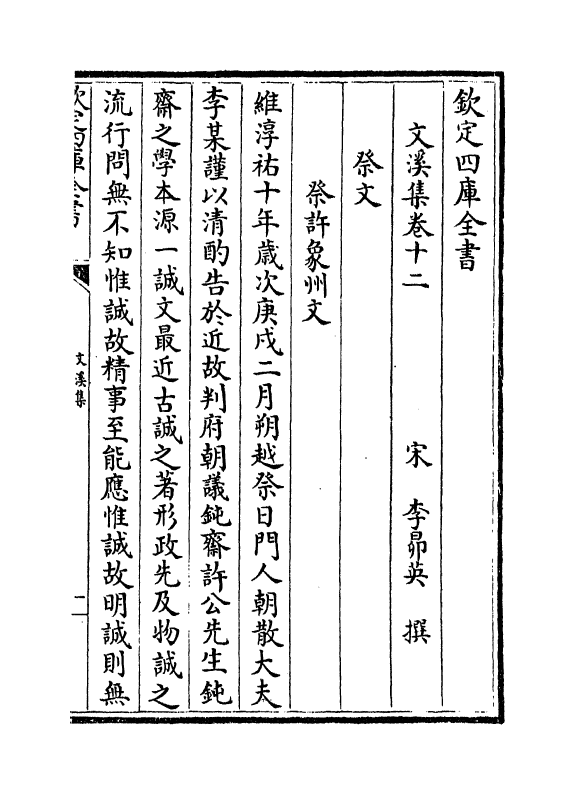 欽定四庫全書
文溪集卷十二
宋 李昴英 撰
祭文
祭許象州文
維淳祐十年歲次庚戌二月朔越祭日門人朝散大夫
李某謹以清酌告於近故判府朝議鈍齋許公先生鈍
齋之學本源一誠文最近古誠之著形政先及物誠之
流行問無不知惟誠故精事至能應惟誠故明誠則無
欽定四庫全書
文溪集